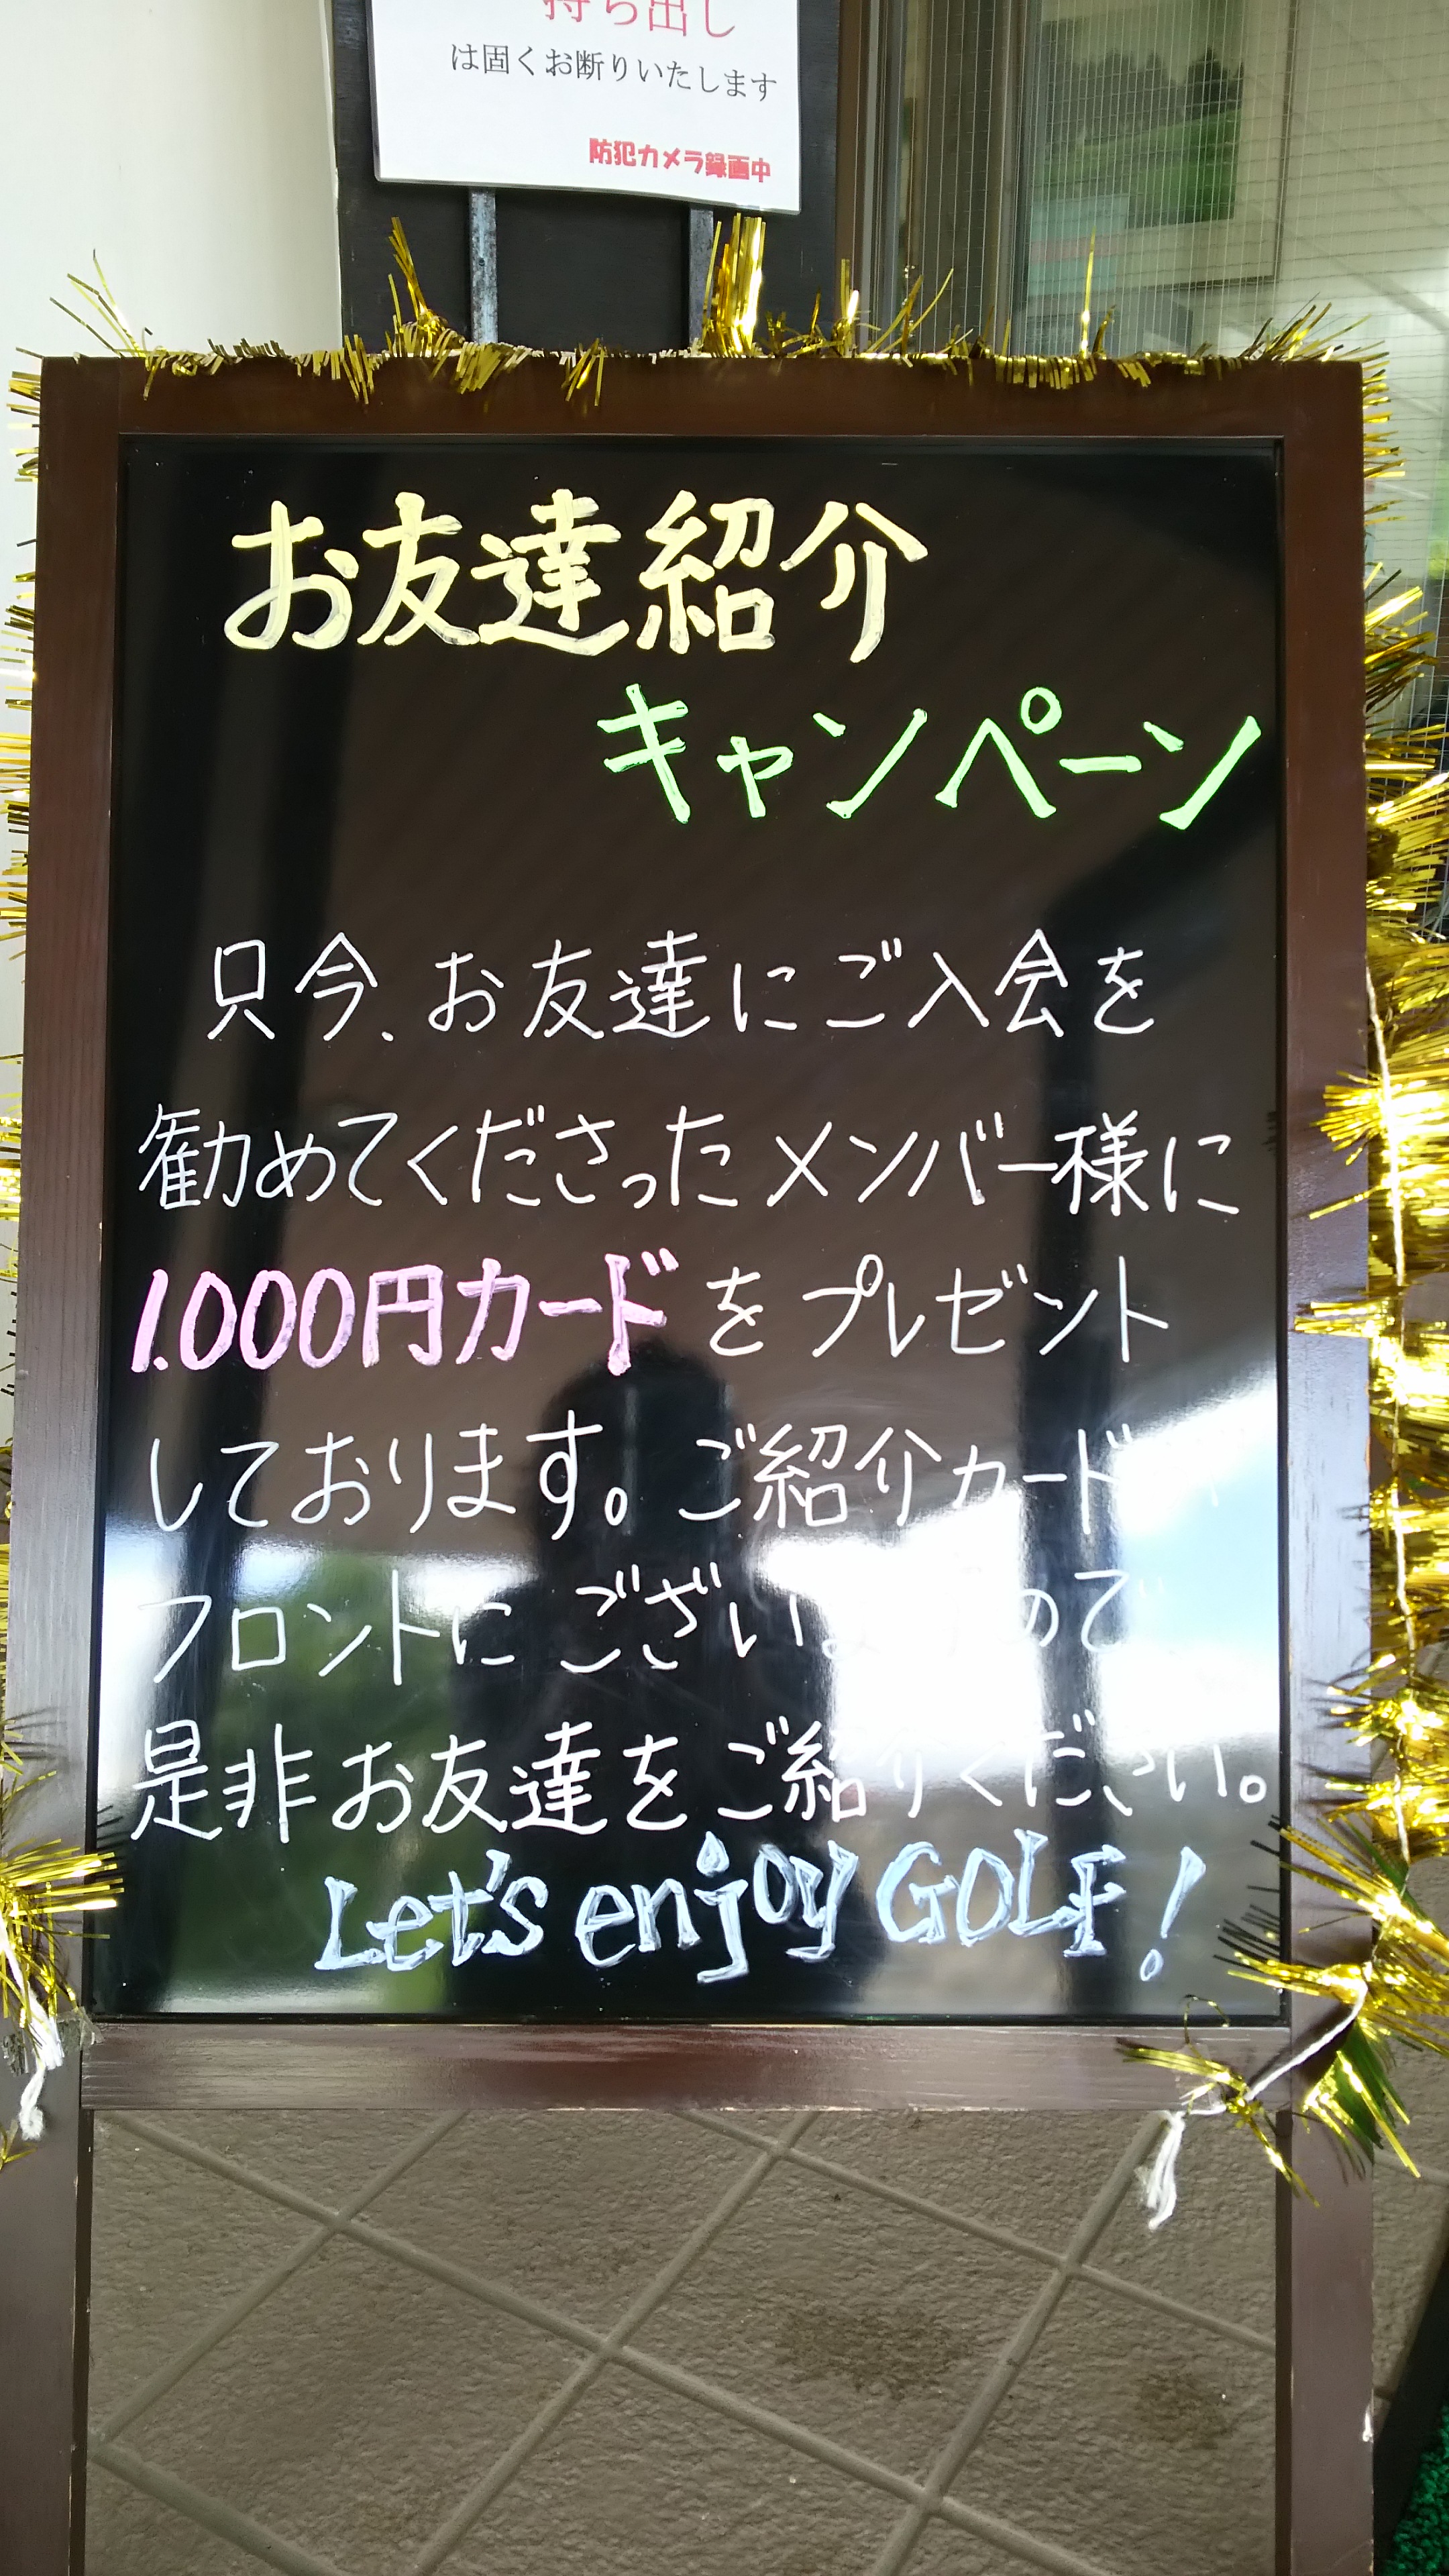 持ち出し
は固くお断りいたします
防犯カメラ録画中
お友達紹介
キャンペーン
只今、お友達にご入会を
勧めてくださったメンバー様に
1.000円カードをプレゼント
しております。ご紹介カード
フロントにございますので
是非お友達をご紹介ください。
Let's enjoy GOLF!